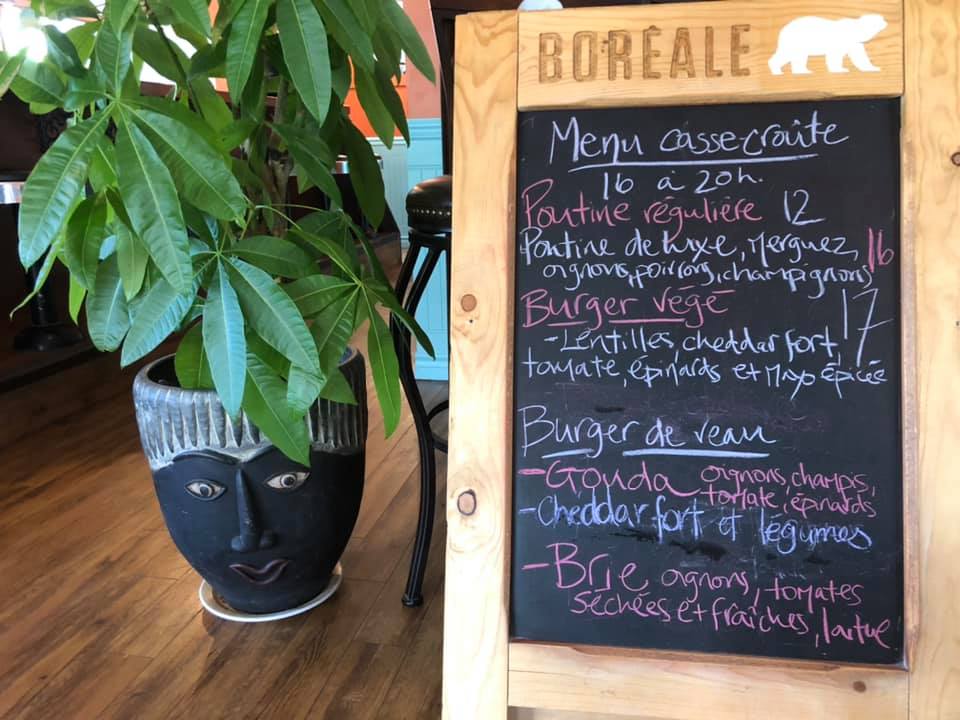 BORÉALE
Menu casse-croûte
16 à 20h.
Poutine régulière 12
Poutine deluxe, Merguez, 16
oignons, poivrons, champignons
Burger végé
-Lentilles, cheddar fort, 17
tomate, épinards et Mayo épicée
Burger de veau
-Gouda oignons, champs,
tomate, épinards
-Cheddar fort et légumes
-Brie oignons, tomates
séchées et fraîches, laitue